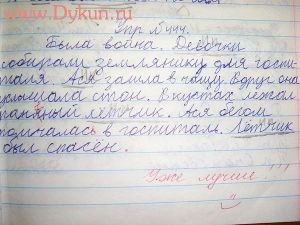 www.Dykun.ru
Упр № 444.
Была война. Девочки
собирали землянику для госпи-
таля. Ася зашла в чащу. Вдруг она
услышала стон. В кустах лежал
раненный лётчик. Ася бегом
помчалась в госпиталь. Лётчик
был спасён.
Уже лучше!!!